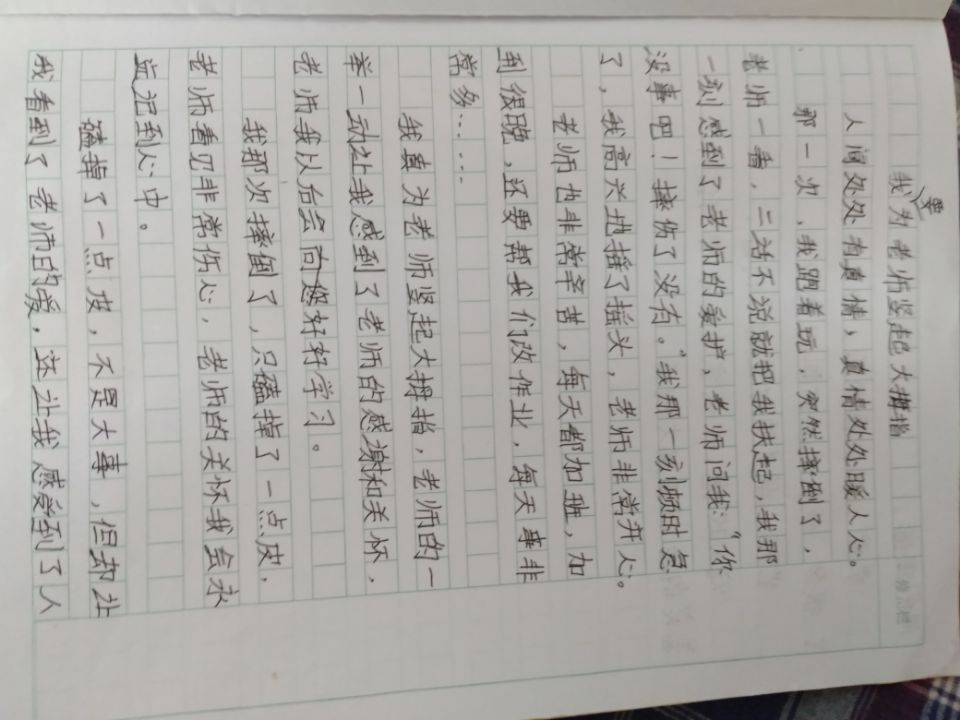 我要为老师竖起大拇指
人间处处有真情，真情处处暖人心。
那一次，我跑着玩，突然摔倒了，
老师一看，二话不说就把我扶起，我那
一刻感到了老师的爱护，老师问我：“你
没事吧！摔伤了没有。”我那一刻顿时忽
了，我高兴地摇了摇头，老师非常开心。
老师也非常辛苦，每天都加班，加
到很晚，还要帮我们改作业，每天事非
常多……
我真为老师竖起大拇指，老师的一
举一动让我感到了老师的感谢和关怀，
老师我以后会向您好好学习。
我那次摔倒了，只磕掉了一点皮，
老师看见非常伤心，老师的关怀我会永
远记到心中。
磕掉了一点皮，不是大事，但却让
我看到了老师的爱，这让我感受到了人